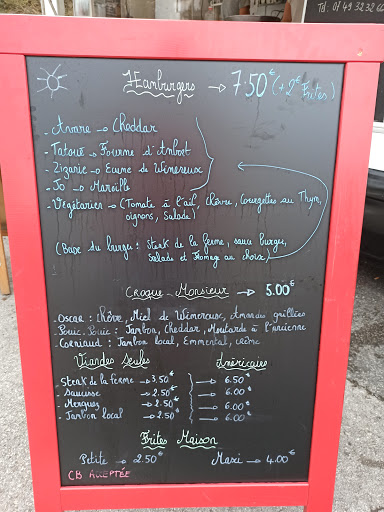 Tél: 01 49 32 32 66
Hamburgers → 7.50€ (+ 2€ Frites)
- → Cheddar
- Tatoué → Fourme d'Ambert
- Zizanie →
- Jo → Maroille
- Végétarien → (Tomate à l'ail, Chèvre, Courgettes au Thym,
oignons, Salade)
(Base du burger : steak de la ferme, sauce burger,
Salade et Fromage au choix)
Croque - Monsieur → 5.00€
- Oscar : Miel de Wimereux, Amandes grillées
- Pouic-Pouic : Jambon, Cheddar, Moutarde à l'ancienne
- Corniaud : Jambon local, Emmental, crème
Viandes Seules Américaine
- Steak de la Ferme → 3.50€ → 6.50€
- Saucisse → 2.50€ → 6.00€
- Merguez → 2.50€ → 6.00€
- Jambon local → 2.50€ → 6.00€
Frites Maison
Petite → 2.50€ Maxi → 4.00€
CB ACCEPTÉE